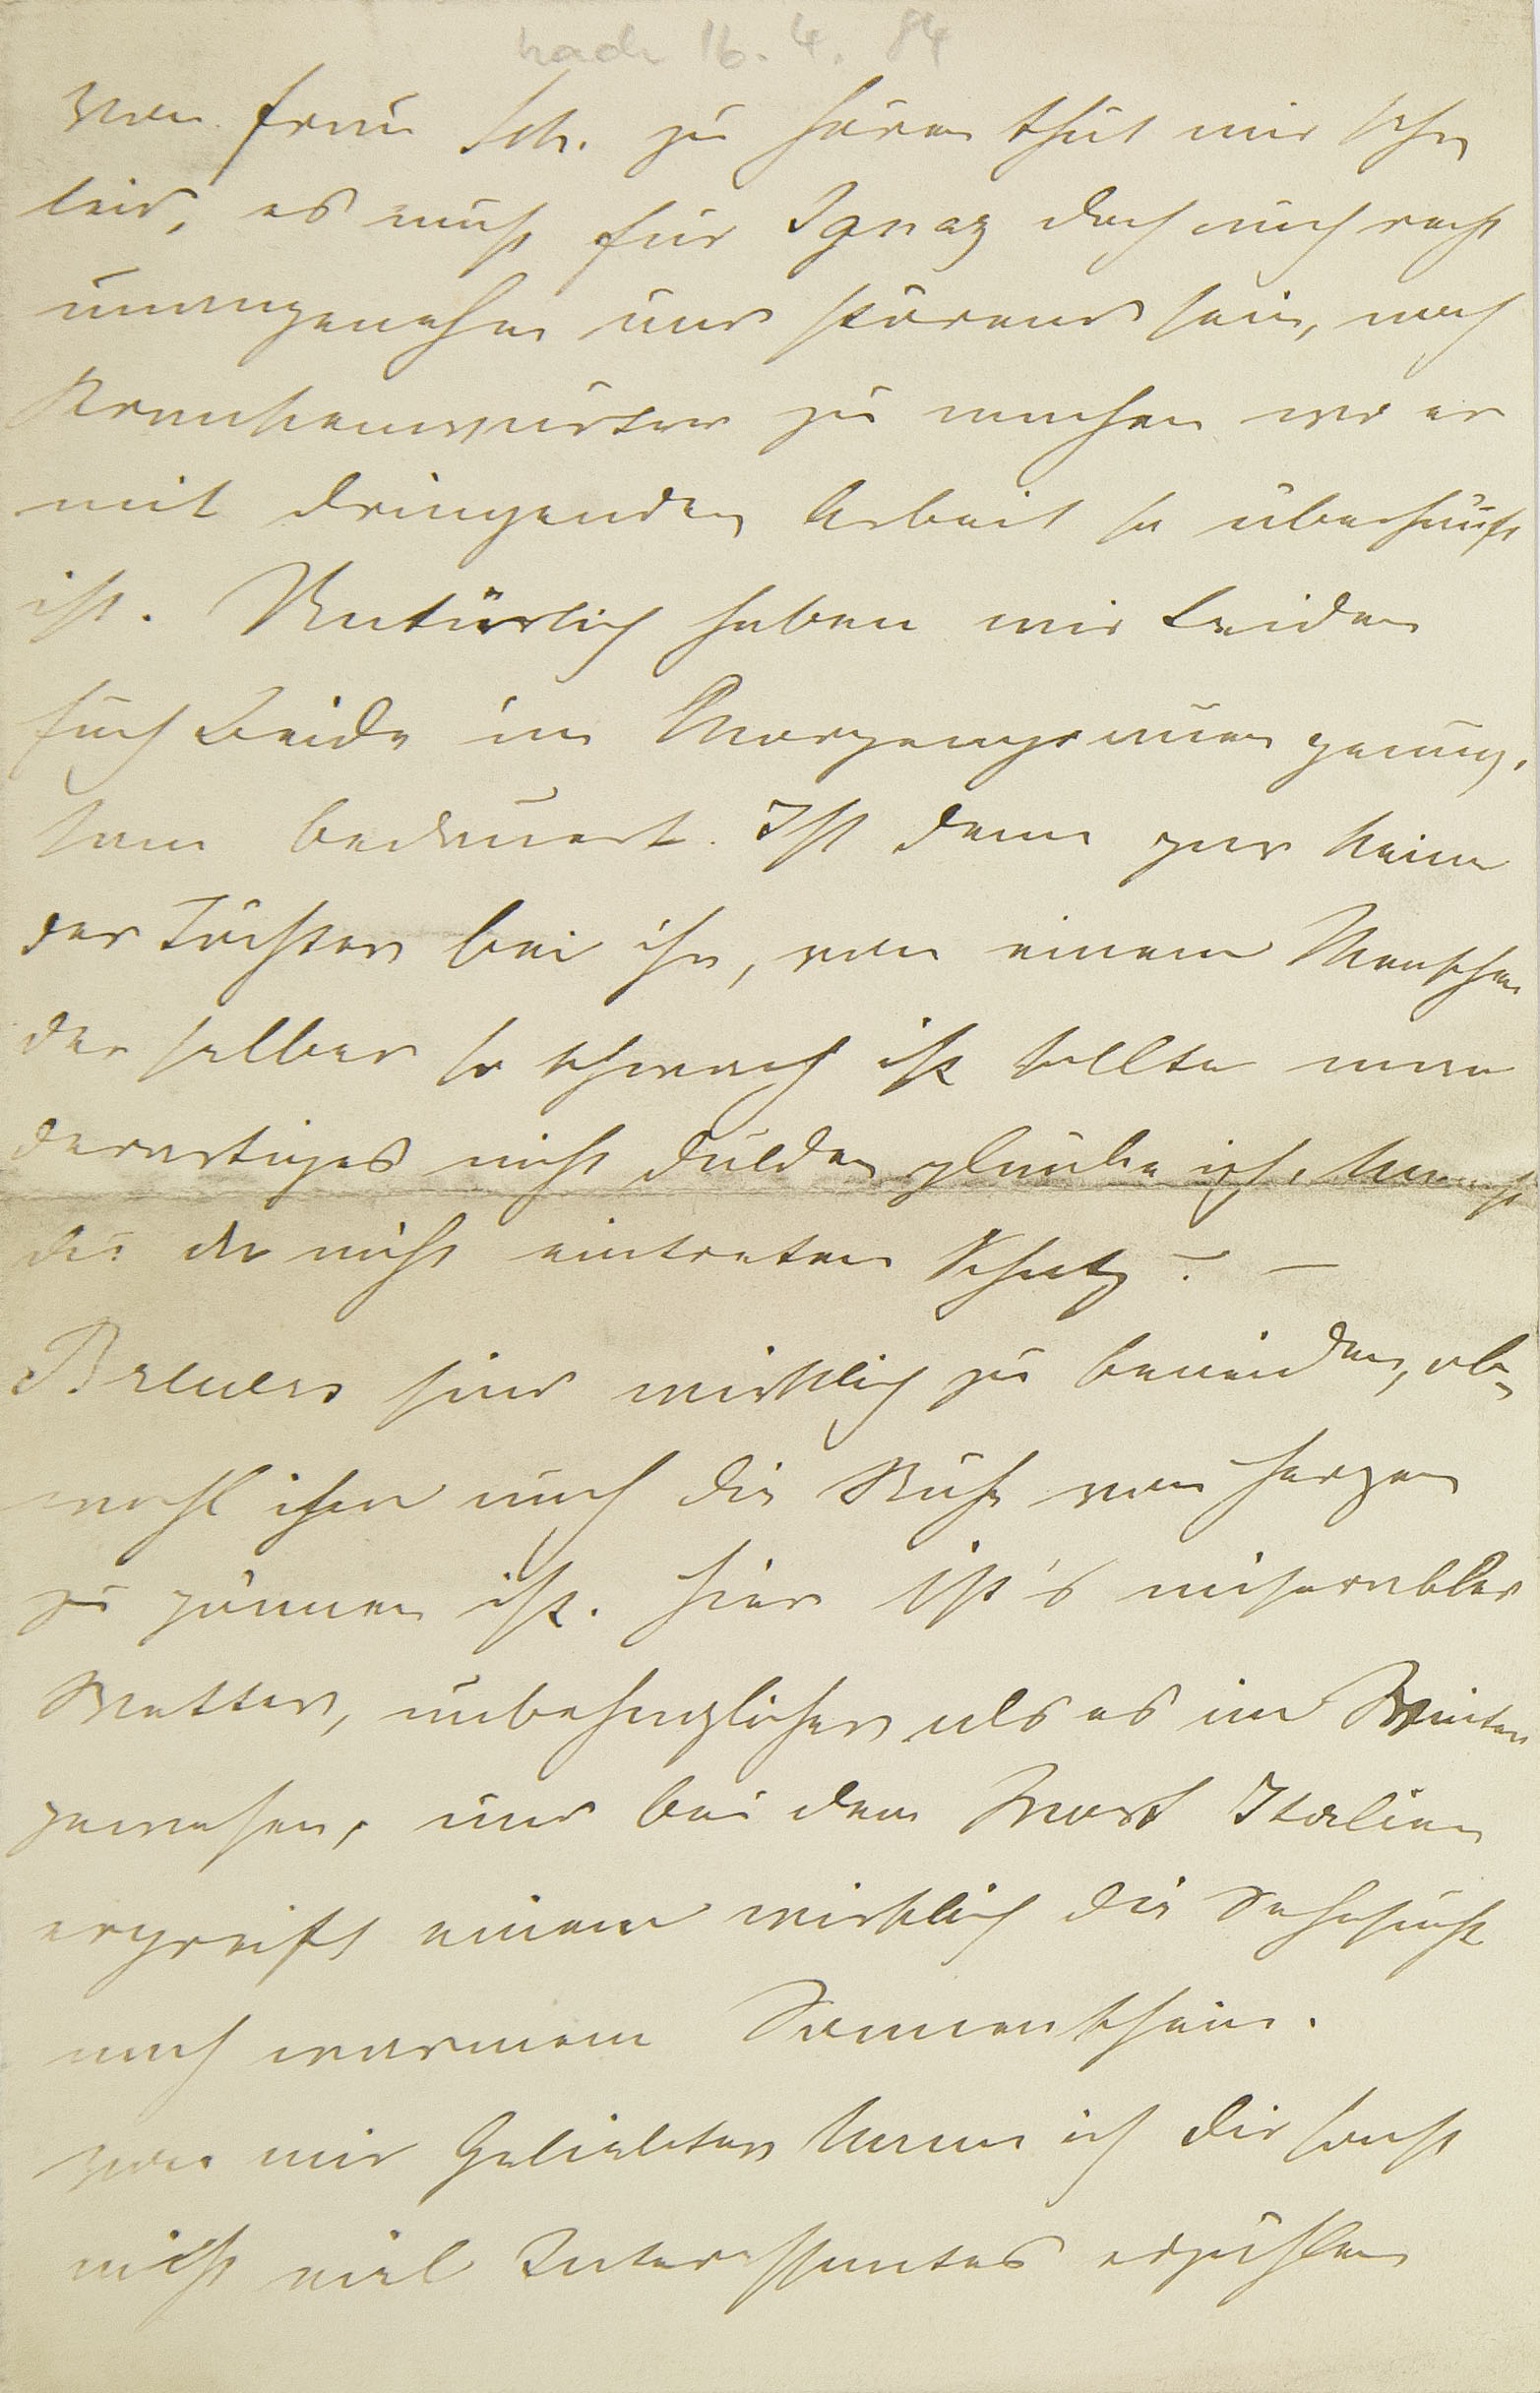 nach 16. 4. 84
Von Frau Sch. zu hören thut mir sehr
leid, es muß für Ignaz doch auch recht
unangenehm und störend sein, noch
Krankenwärter zu machen wo er
mit dringender Arbeit so überhäuft
ist. Natürlich haben wir beiden
Euch Beide im Morgengrauen genug-
sam bedauert. Ist denn gar keine
der Töchter bei ihr, von einem Menschen
der selber so schwach ist sollte man
derartiges nicht dulden glaube ich, kannst
du da nicht eintreten Schatz? –
Breuers sind wirklich zu beneiden, ob-
wohl ihm auch die Ruhe von Herzen
zu gönnen ist. Hier ist's miserables
Wetter, unbehaglicher als es im Winter
gewesen, und bei dem Wort Italien
ergreift einen wirklich die Sehnsucht
nach warmem Sonnenschein.
Von mir Geliebter kann ich dir sonst
nicht viel Interessantes erzählen